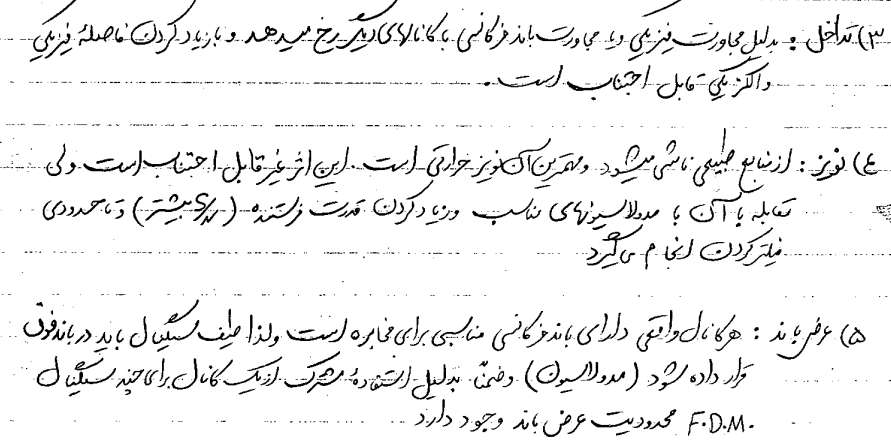 ۳) تداخل : بدلیل مجاورت فیزیکی و یا مجاورت باند فرکانسی با کانالهای دیگر رخ میدهد و با زیاد کردن فاصلهٔ فیزیکی
و الکتریکی قابل اجتناب است.
٤) نویز : از منابع طبیعی ناشی میشود و مهمترین آن نویز حرارتی است. این اثر غیر قابل اجتناب است ولی
مقابله با آن با مدولاسیونهای مناسب و زیاد کردن قدرت فرستنده ( بیشتر ) و تا حدودی
فیلتر کردن انجام می گیرد
۵) عرض باند : هر کانال واقعی دارای باند فرکانسی مناسبی برای مخابره است ولذا طیف سیگنال باید در باند فوق
قرار داده شود (مدولاسیون) و ضمناً بدلیل استفادهٔ مشترک از یک کانال برای چند سیگنال
F.D.M. محدودیت عرض باند وجود دارد